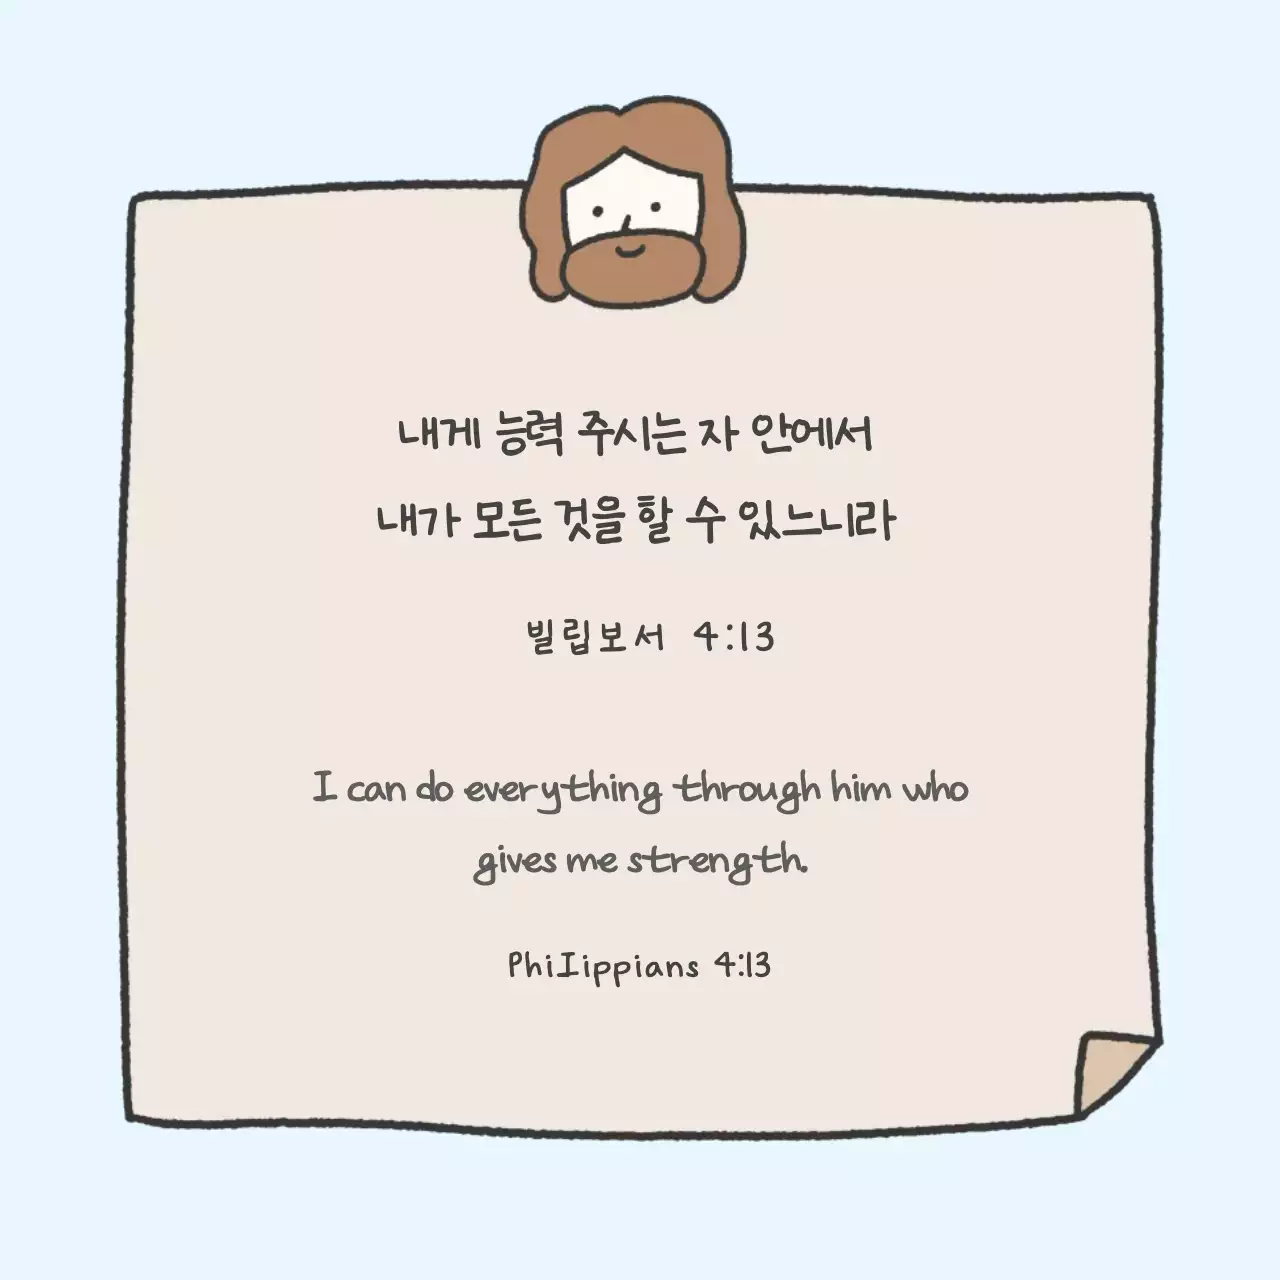 내게 능력 주시는 자 안에서
내가 모든 것을 할 수 있느니라
빌립보서 4:13
I can do everything through him who
gives me strength.
PhiIippians 4:13